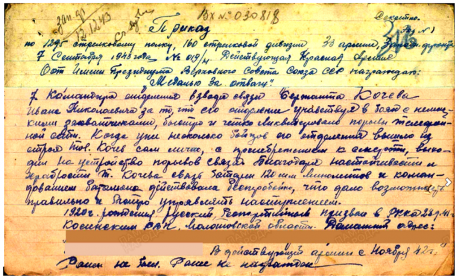 Вх № 030818
Секретно.
Приказ
по 1295 стрелковому полку, 160 стрелковой дивизии 33 армии,
7 Сентября 1943 года № 009/н Действующая Красная армия
От имени Президиума Верховного Совета Союза ССР награждаю:
"Медалью За отвагу"
7. Командира отделения взвода связи Сержанта Кочева
Ивана Николаевича за то, что его отделение участвуя в боях с немец-
кими захватчиками, быстро и четко порывы телефон-
ной сети. Когда уже несколько бойцов его отделения вышло из
строя тов. Кочев сам лично, с пренебрежением к смерти, выхо-
дил на устройство порывов связи. Благодаря настойчивости и
храбрости т. Кочева связь батареи 120 м/м минометов и коман-
дованием действовала бесперебойно, что дало возможность
правильно и быстро управлять наступлением.
1920 г. рождения, русский, беспартийный призван в РККА
Косинским РВК Молотовской области. Домашний адрес:
В действующей армии с Ноября 42 г.
Ранее не награжден